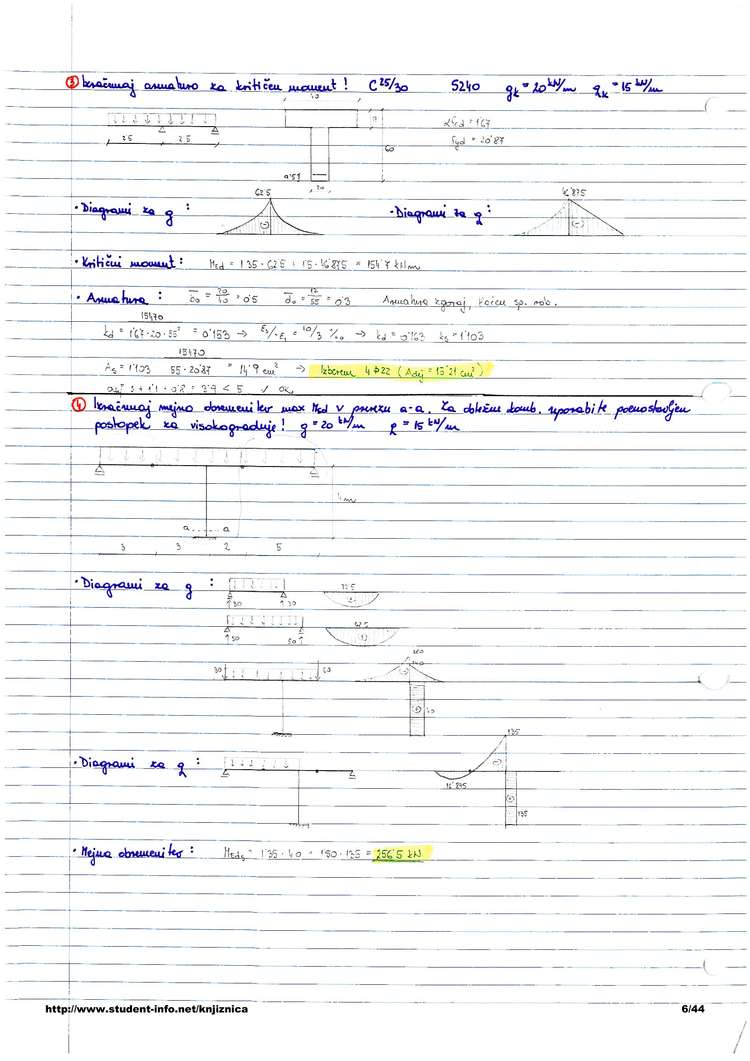 ③ Izračunaj armaturo za kritičen moment! C25/30 S240 gk = 20 kN/m qk = 15 kN/m
40
αfcd = 1'67
fyd = 20'87
2'5 2'5
60
20
62'5 46'875
• Diagrami za g : • Diagrami za q :
• Kritični moment : MEd = 1'35 · 62'5 + 1'5 · 46'875 = 154'7 kNm
• Armatura : = 0'5 = 0'3 Armatura zgoraj,
15470
kd = 1'67·20·55² = 0'153 → = 10/3 ‰ → kd = 0'163 ks = 1'103
15470
As = 1'103 55·20'87 = 14'9 cm² → Izberem 4Φ22 (Adej = 15'21 cm²)
= 3'9 < 5 ✓ ok
④ Izračunaj mejno obremenitev max MEd v prerezu a-a. Za obtežne komb. uporabite poenostavljen
postopek za visokogradnje! g = 20 kN/m q = 15 kN/m
4 m
a a
3 3 2 5
• Diagrami za g :
30 30
62'5
50 50
30 50
40
• Diagrami za q :
135
16'875
135
• Mejna obremenitev : MEds = 1'35 · 40 + 1'50 · 135 = 256'5 kN
http://www.student-info.net/knjiznica 6/44